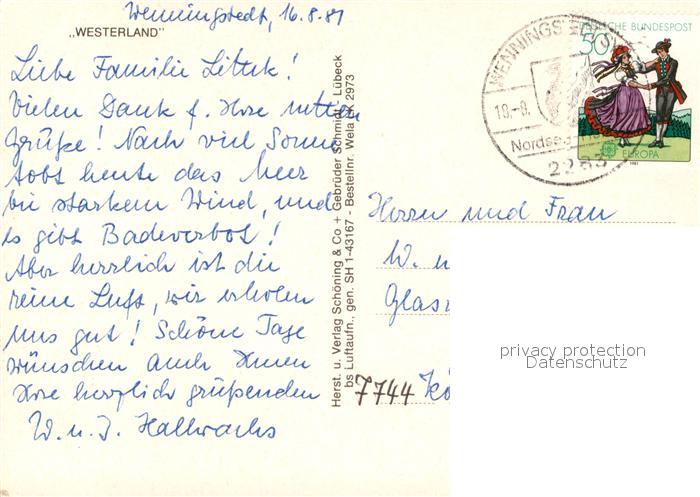 Wenningstedt, 16.8.81
„WESTERLAND"
Liebe Familie Littek!
Vielen Dank f. Ihre netten
Grüße! Nach viel Sonne
tobt heute das Meer
bei starkem Wind, und
es gibt Badeverbot!
Aber herrlich ist die
reine Luft, wir erholen
uns gut! Schöne Tage
wünschen auch Ihnen
Ihre herzlich grüßenden
W. u. I. Hallwachs
Herst. u. Verlag Schöning & Co + Gebrüder Schmidt, Lübeck
bs Luftaufn., gen. SH 1-43167 - Bestellnr. Wela DK 2973
WENNINGST
18.-8.
Nordsee
2283
DEUTSCHE BUNDESPOST
50
EUROPA
1981
Herrn und Frau
W. u
Glas
7744 Kö
privacy protection
Datenschutz